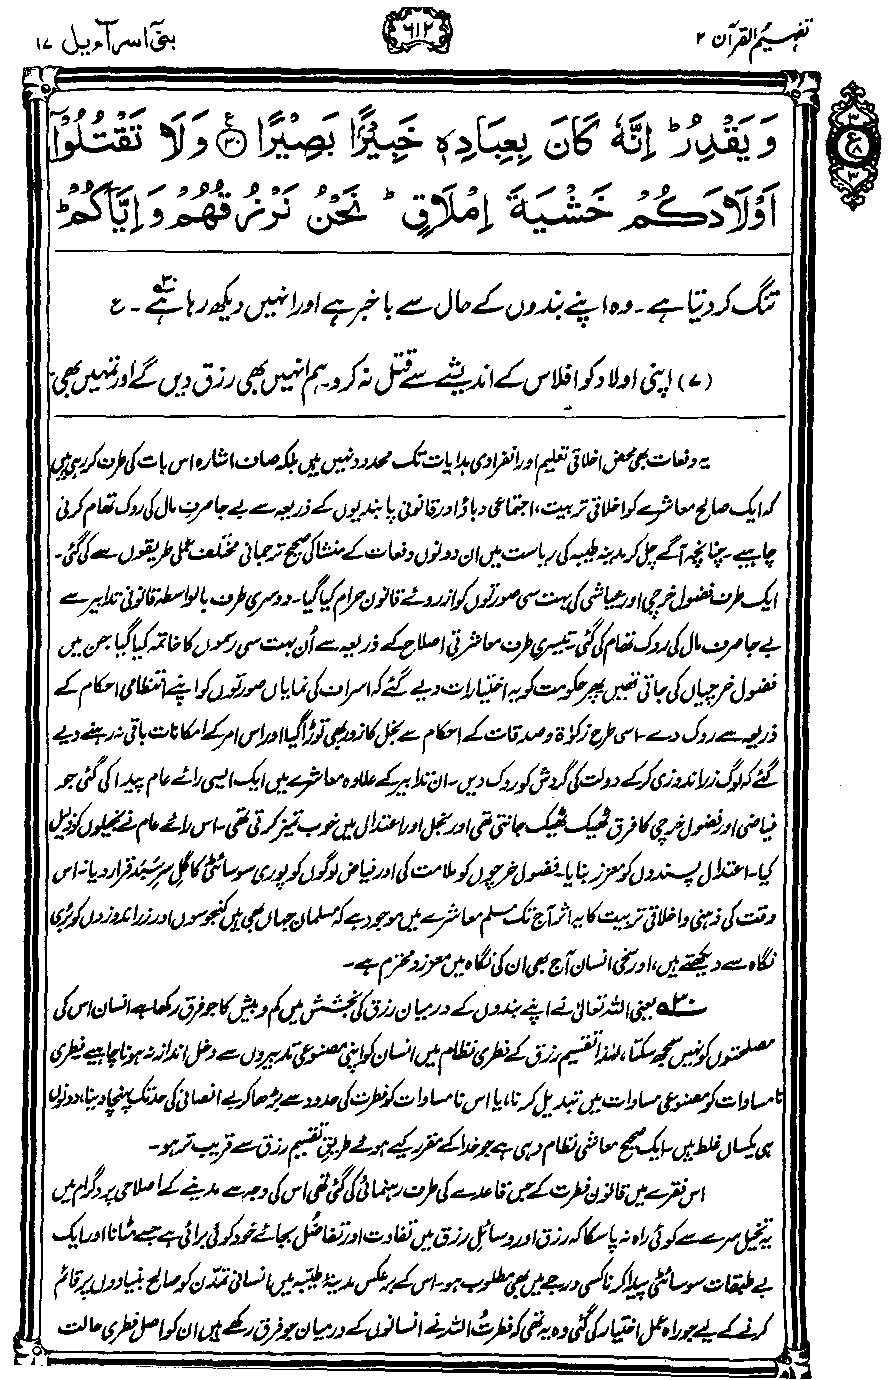 تفہیم القرآن ۲
۶۱۲
بنی اسرآءیل ۱۷
وَ يَقْدِرُ ؕ اِنَّهٗ كَانَ بِعِبَادِهٖ خَبِيْرًۢا بَصِيْرًا ﴿۳۰﴾ وَلَا تَقْتُلُوْۤا
اَوْلَادَكُمْ خَشْيَةَ اِمْلَاقٍ ؕ نَحْنُ نَرْزُقُهُمْ وَاِيَّاكُمْ ؕ
تنگ کر دیتا ہے۔ وہ اپنے بندوں کے حال سے باخبر ہے اور انہیں دیکھ رہا ہے۳۰۔ ع
(۷) اپنی اولاد کو افلاس کے اندیشے سے قتل نہ کرو۔ ہم انہیں بھی رزق دیں گے اور تمہیں بھی۔
یہ دفعات بھی محض اخلاقی تعلیم اور انفرادی ہدایات تک محدود نہیں ہیں بلکہ صاف اشارہ اس بات کی طرف کر رہی ہیں
کہ ایک صالح معاشرے کو اخلاقی تربیت، اجتماعی دباؤ اور قانونی پابندیوں کے ذریعہ سے بے جا صرفِ مال کی روک تھام کرنی
چاہیے۔ چنانچہ آگے چل کر مدینۂ طیبہ کی ریاست میں ان دونوں دفعات کے منشا کی صحیح ترجمانی مختلف عملی طریقوں سے کی گئی۔
ایک طرف فضول خرچی اور عیاشی کی بہت سی صورتوں کو از روئے قانون حرام کیا گیا۔ دوسری طرف بالواسطہ قانونی تدابیر سے
بے جا صرفِ مال کی روک تھام کی گئی۔ تیسری طرف معاشرتی اصلاح کے ذریعہ سے اُن بہت سی رسموں کا خاتمہ کیا گیا جن میں
فضول خرچیاں کی جاتی تھیں۔ پھر حکومت کو یہ اختیارات دیے گئے کہ اسراف کی نمایاں صورتوں کو اپنے انتظامی احکام کے
ذریعہ سے روک دے۔ اسی طرح زکوٰۃ و صدقات کے احکام سے بخل کا زور بھی توڑا گیا اور اس امر کے امکانات باقی نہ رہنے دیے
گئے کہ لوگ زر اندوزی کر کے دولت کی گردش کو روک دیں۔ ان تدابیر کے علاوہ معاشرے میں ایک ایسی رائے عام پیدا کی گئی جو
فیاضی اور فضول خرچی کا فرق ٹھیک ٹھیک جانتی تھی اور بخل اور اعتدال میں خوب تمیز کرتی تھی۔ اس رائے عام نے بخیلوں کو ذلیل
کیا۔ اعتدال پسندوں کو معزز بنایا۔ فضول خرچوں کو ملامت کی اور فیاض لوگوں کو پوری سوسائٹی کا گلِ سرِسَبَد قرار دیا۔ اس
وقت کی ذہنی و اخلاقی تربیت کا یہ اثر آج تک مسلم معاشرے میں موجود ہے کہ مسلمان جہاں بھی ہیں کنجوسوں اور زر اندوزوں کو بُری
نگاہ سے دیکھتے ہیں، اور سخی انسان آج بھی ان کی نگاہ میں معزز و محترم ہے۔
۳۰ یعنی اللہ تعالیٰ نے اپنے بندوں کے درمیان رزق کی بخشش میں کم و بیش کا جو فرق رکھا ہے انسان اس کی
مصلحتوں کو نہیں سمجھ سکتا، لہٰذا تقسیمِ رزق کے فطری نظام میں انسان کو اپنی مصنوعی تدبیروں سے دخل انداز نہ ہونا چاہیے۔ فطری
نامساوات کو مصنوعی مساوات میں تبدیل کرنا، یا اس نامساوات کو فطرت کی حدود سے بڑھا کر بے انصافی کی حد تک پہنچا دینا، دونوں
ہی یکساں غلط ہیں۔ ایک صحیح معاشی نظام وہی ہے جو خدا کے مقرر کیے ہوئے طریقِ تقسیمِ رزق سے قریب تر ہو۔
اس فقرے میں قانونِ فطرت کے جس قاعدے کی طرف رہنمائی کی گئی تھی اس کی وجہ سے مدینے کے اصلاحی پروگرام میں
یہ تخیل سرے سے کوئی راہ نہ پا سکا کہ رزق اور وسائلِ رزق میں تفاوت اور تفاضُل بجائے خود کوئی برائی ہے جسے مٹانا اور ایک
بے طبقات سوسائٹی پیدا کرنا کسی درجے میں بھی مطلوب ہو۔ اس کے برعکس مدینۂ طیبّہ میں انسانی تمدّن کو صالح بنیادوں پر قائم
کرنے کے لیے جو راہِ عمل اختیار کی گئی وہ یہ تھی کہ فطرتُ اللہ نے انسانوں کے درمیان جو فرق رکھے ہیں ان کو اصل فطری حالت